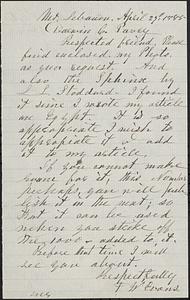 Mt. Lebanon, April 29, 1885.
Charles C. Pavey
Respected friend, Please
find enclosed an Photo.
as you request. And
also the Sphinx by
L. Stoddard. I found
it since I wrote my article
on Egypt. it is so
appropriate I wish to
appropriate it & add
it to my article.
If you cannot make
room for it, this number
perhaps, you will pub-
lish it in the next; so
that it can be used
when you strike off
the 1000 - added to it.
Before that time I will
see you about
Respectfully
F W Evans